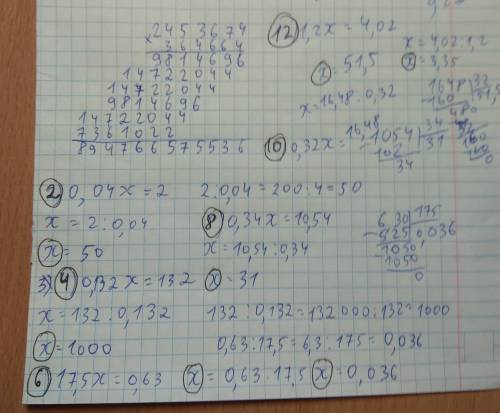 2453674
× 364664
9814696
14722044
14722044
9814696
14722044
7361022
894766575536
12) 1,2x = 4,02
x = 4,02 : 1,2
x = 3,35
x = 51,5
x = 16,48 : 0,32
1648 | 32
-160 | 51,5
48
10) 0,32x = 16,48
-1054 | 34
102 | 31
34
2) 0,04x = 2 2 : 0,04 = 200 : 4 = 50
x = 2 : 0,04 8) 0,34x = 10,54
x = 50 x = 10,54 : 0,34
6,30 | 175
-525 | 0,036
1050
-1050
0
3) 4) 0,132x = 132 x = 31
x = 132 : 0,132 132 : 0,132 = 132000 : 132 = 1000
x = 1000 0,63 : 17,5 = 6,3 : 175 = 0,036
6) 17,5x = 0,63 x = 0,63 : 17,5 x = 0,036